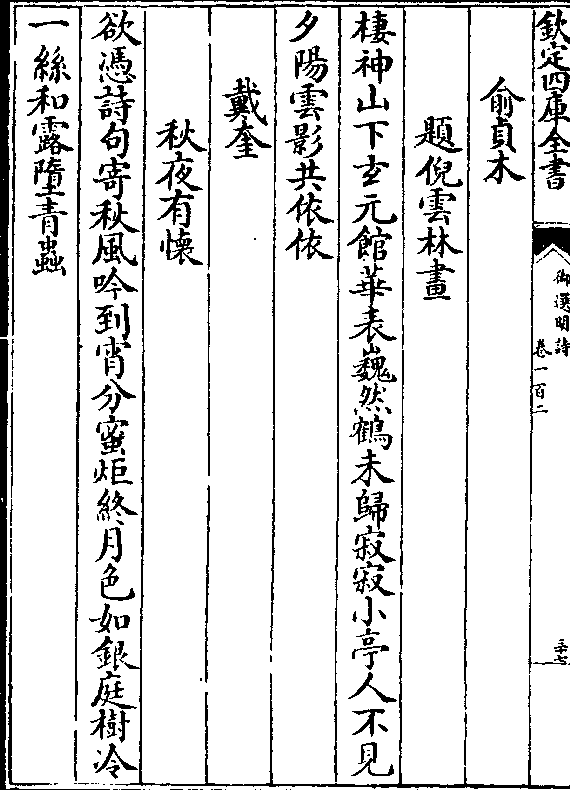 欽定四庫全書
御選明詩
卷一百二
三十七
俞貞木
題倪雲林畫
棲神山下玄元館華表巍然鶴未歸寂寂小亭人不見
夕陽雲影共依依
戴奎
秋夜有懷
欲憑詩句寄秋風吟到宵分蜜炬終月色如銀庭樹冷
一絲和露墮青蟲